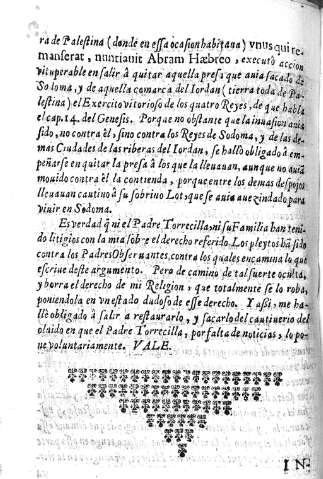 ra de Palestina (donde en essa ocasion habitaua) vnus qui re-
manserat, nuntiauit Abram Hæbreo, executò accion
vituperable en salir à quitar aquella presa que auia sacado de
Sodoma, y de aquella comarca del Iordan (tierra toda de Pa-
lestina) el Exercito vitorioso de los quatro Reyes, de que habla
el cap. 14. del Genesis. Porque no obstante que la inuasion auia
sido, no contra èl, sino contra los Reyes de Sodoma, y de las de-
màs Ciudades de las riberas del Iordan, se hallò obligado à em-
peñarse en quitar la presa à los que la lleuauan, aunque no auia
mouido contra èl la contienda, porque entre los demas despojos
lleuauan cautiuo à su sobrino Lot, que se auia auezindado para
viuir en Sodoma.
Es verdad q̃ ni el Padre Torrecilla, ni su Familia han teni-
do litigios con la mia sobre el derecho referido. Los pleytos hã sido
contra los Padres Obseruantes, contra los quales encamina lo que
escriue deste argumento. Pero de camino de tal suerte oculta,
y borra el derecho de mi Religion, que totalmente se lo roba,
poniendola en vn estado dudoso de esse derecho. Y assi, me ha-
llè obligado à salir à restaurarlo, y sacarlo del cautiuerio del
oluido en que el Padre Torrecilla, por falta de noticias, lo po-
ne voluntariamente. VALE.
IN-